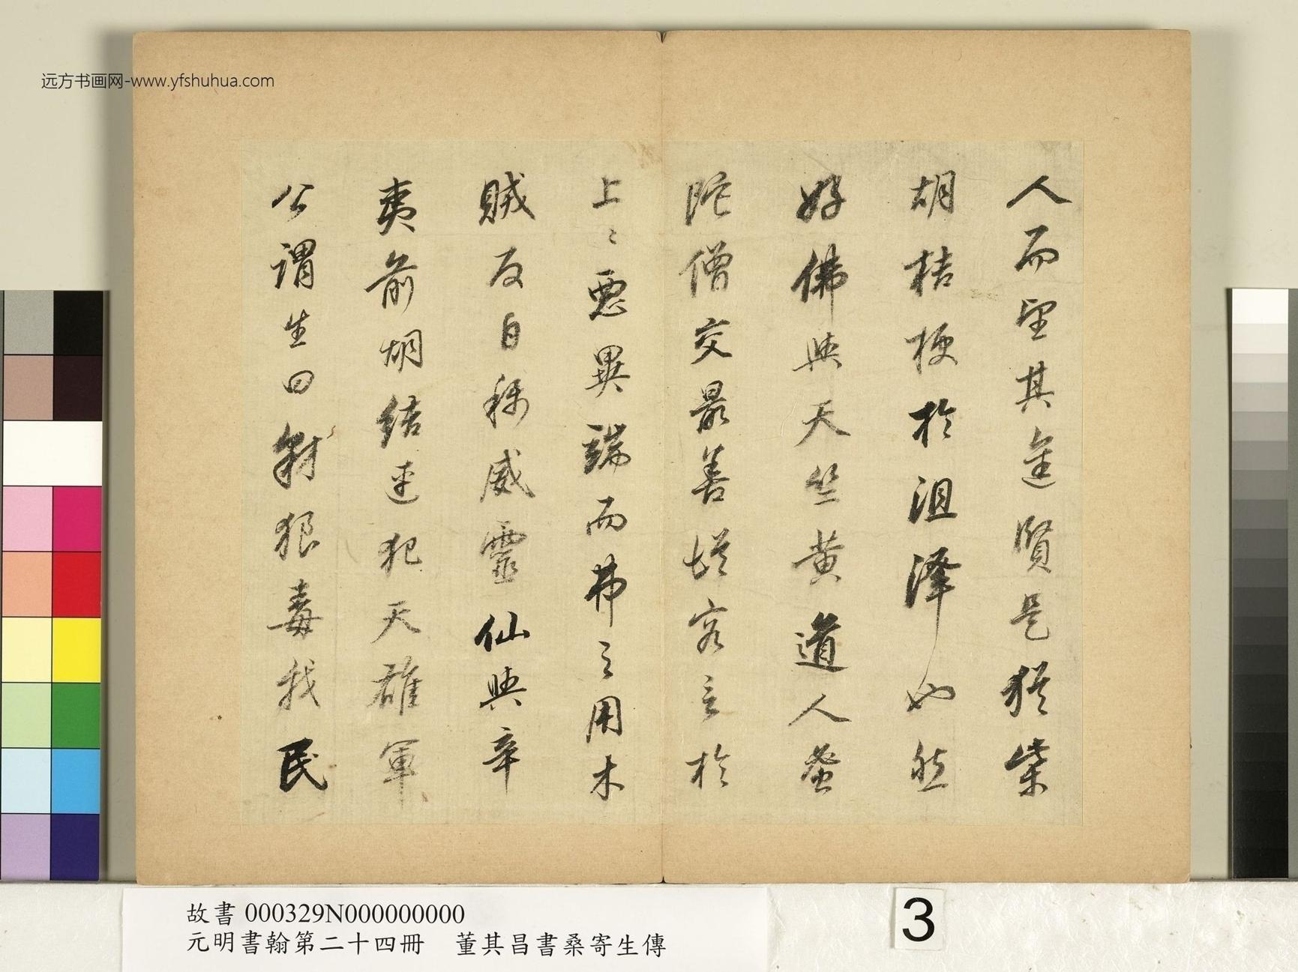 远方书画网-www.yfshuhua.com
人而望其進賢是猶柴
胡桔梗於沮澤也然
好佛與天竺黃道人蚤
陀僧交最善嘗客言於
上上惡異端而弗之用木
賊反自稱威靈仙與辛
夷前胡結連犯天雄軍
公謂生曰豺狼毒我民
故書 000329N000000000
元明書翰第二十四冊 董其昌書桑寄生傳
3